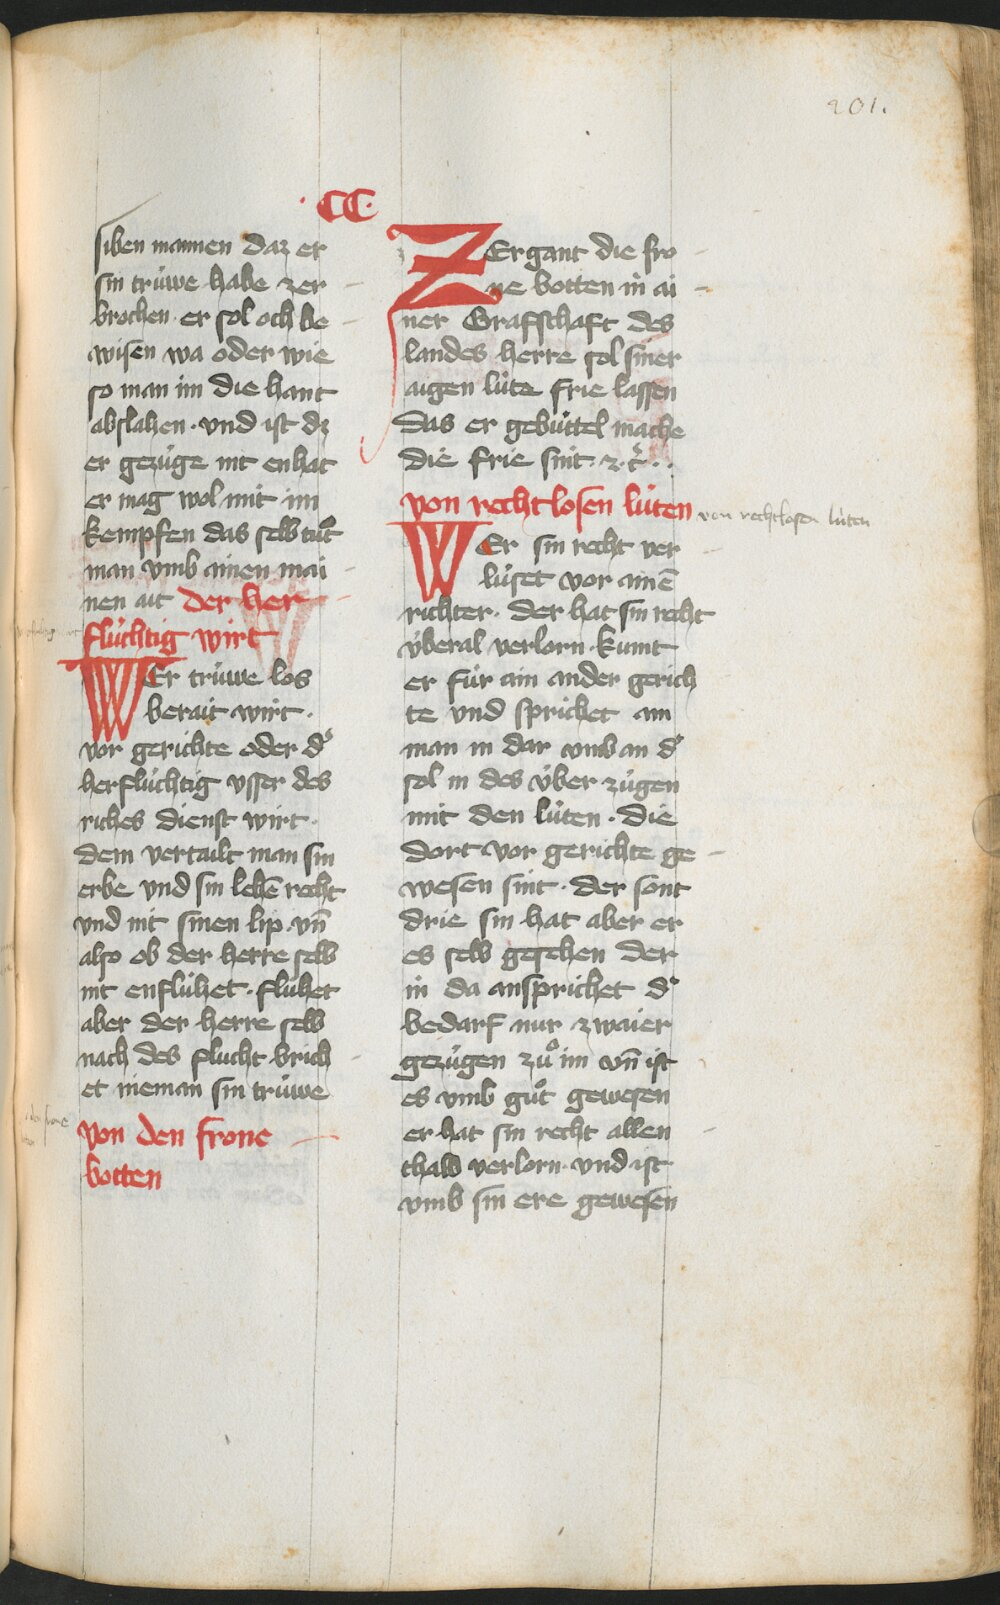 201.
·CC·
siben mannen daz er
sin trüwe habe zer
brochen· er sol och be
wisen wa oder wie
so man im die hant
abslahen· vnd ist dz
er gezüge nit enhat
er mag wol mit im
kempfen das selb tůt
man vmb ainen mai
nen ait der her
flüchtig wirt
WEr trüwe los
berait wirt·
vor gerichte oder dˢ
herflüchtig vsser des
riches dienst wirt·
dem vertailt man sin
erbe vnd sin lehē recht
vnd nit sinen lip· vn̄
also ob der herre selb
nit enflühet· flühet
aber der herre selb
nach des flucht brich
et nieman sin trüwe
von den frone
botten
ZErgant die fro
ne botten in ai
ner Grafschaft des
landes herre sol siner
aigen lüte frie lassen
Das er gebüttel mache
die frie sint· ⁊·c̃··
von rechtlosen lüten
von rechtlosen lüten
WEr sin recht ver
lüset vor ainē
richter· der hat sin recht
überal verlorn· kumt
er für ain ander gerich
te vnd sprichet ain
man in dar vmb an dˢ
sol in des über zügen
mit den lüten· die
dort vor gerichte ge
wesen sint· der sont
drie sin hat aber er
es selb gesehen der
in da ansprichet dˢ
bedarf nur zwaier
gezügen zů im vn̄ ist
es vmb gůt gewesen
er hat sin recht allen
thalb verlorn· vnd ist
vmb sin ere gewesen